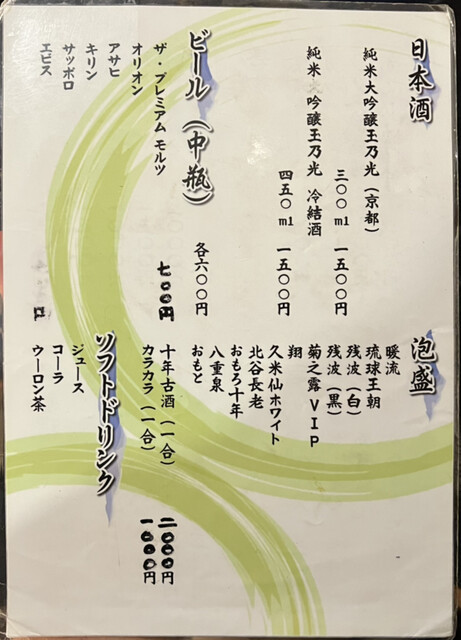 日本酒
純米大吟醸玉乃光（京都）
三〇〇ml 一五〇〇円
純米大吟醸玉乃光 冷結酒
四五〇ml 一五〇〇円
ビール（中瓶）
各六〇〇円
ザ・プレミアムモルツ
七〇〇円
オリオン
アサヒ
キリン
サッポロ
エビス
泡盛
暖流
琉球王朝
残波（白）
残波（黒）
菊之露ＶＩＰ
翔
久米仙ホワイト
北谷長老
おもろ十年
八重泉
おもと
十年古酒（一合）
二〇〇〇円
カラカラ（一合）
一〇〇〇円
ソフトドリンク
ジュース
コーラ
ウーロン茶